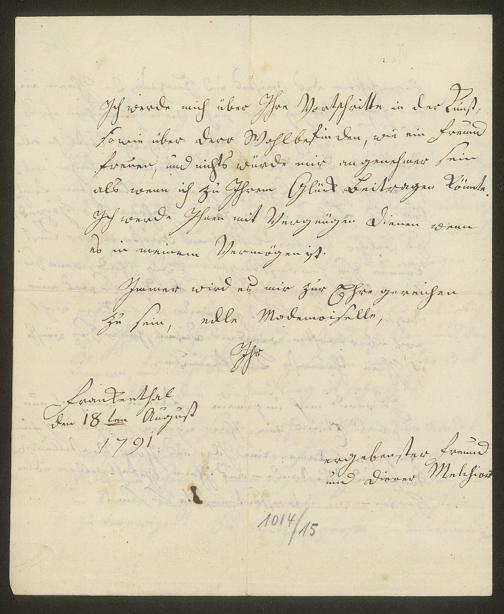 Ich werde mich über Ihre Vortschritte in der Kunst,
sowie über dero Wohlbefinden, wie ein Freund
freuen, und nichts würde mir angenehmer sein
als wenn ich zu Ihrem Glück beitragen könte.
Ich werde Ihnen mit Vergnügen dienen wenn
es in meinem Vermögen ist.
Immer wird es mir zur Ehre gereichen
zu sein, edle Mademoiselle,
Ihr
Frankenthal
den 18ten August
1791.
ergebenster Freund
und Diener Melchior
1014/15